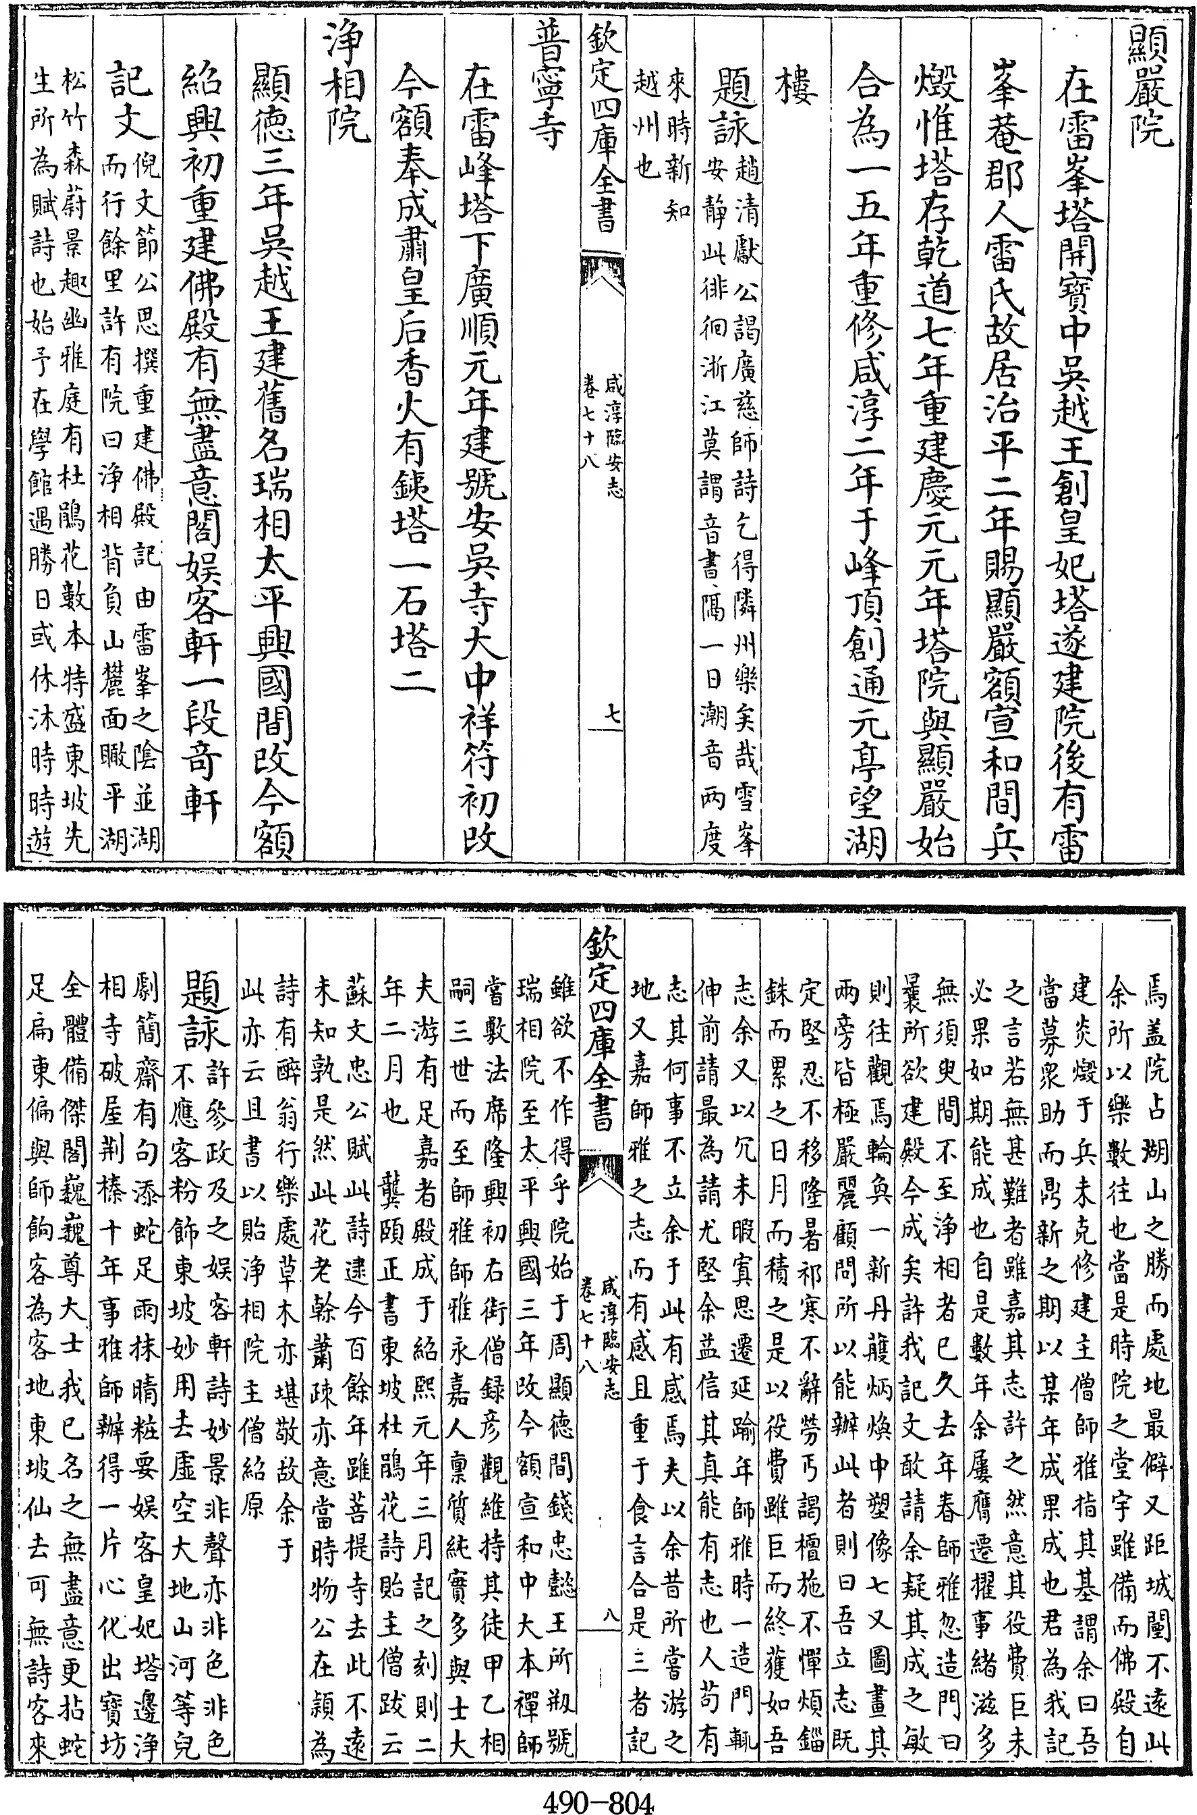 顯嚴院
在雷峯塔開寶中吳越王創皇妃塔遂建院後有雷
峯菴郡人雷氏故居治平二年賜顯嚴額宣和間兵
燬惟塔存乾道七年重建慶元元年塔院與顯嚴始
合為一五年重修咸淳二年于峰頂創通元亭望湖
樓
題詠趙清獻公謁廣慈師詩乞得隣州樂矣哉雪峯
安靜此徘徊浙江莫謂音書隔一日潮音兩度
來時新知
越州也
欽定四庫全書
咸淳臨安志
卷七十八
七
普寧寺
在雷峰塔下廣順元年建號安吳寺大中祥符初改
今額奉成肅皇后香火有鐵塔一石塔二
淨相院
顯德三年吳越王建舊名瑞相太平興國間改今額
紹興初重建佛殿有無盡意閣娛客軒一段竒軒
記文倪文節公思撰重建佛殿記由雷峯之陰並湖
而行餘里許有院曰淨相背負山麓面瞰平湖
松竹森蔚景趣幽雅庭有杜鵑花數本特盛東坡先
生所為賦詩也始予在學館遇勝日或休沐時遊
焉盖院占湖山之勝而處地最僻又距城闉不遠此
余所以樂數往也當是時院之堂宇雖備而佛殿自
建炎燬于兵未克修建主僧師雅指其基謂余曰吾
當募衆助而鼎新之期以某年成果成也君為我記
之言若無甚難者雖嘉其志許之然意其役費巨未
必果如期能成也自是數年余屢膺遷擢事緒滋多
無須臾間不至淨相者已久去年春師雅忽造門曰
曩所欲建殿今成矣許我記文敢請余疑其成之敏
則往觀焉輪奐一新丹雘炳煥中塑像七又圖畫其
兩旁皆極嚴麗顧問所以能辦此者則曰吾立志既
定堅忍不移隆暑祁寒不辭勞丐謁檀施不憚煩錙
銖而累之日月而積之是以役費雖巨而終獲如吾
志余又以冗未暇寘思遷延踰年師雅時一造門輒
伸前請最為請尤堅余益信其真能有志也人苟有
志其何事不立余于此有感焉夫以余昔所嘗游之
地又嘉師雅之志而有感且重于食言合是三者記
欽定四庫全書
咸淳臨安志
卷七十八
八
雖欲不作得乎院始于周顯德間錢忠懿王所剏號
瑞相院至太平興國三年改今額宣和中大本禪師
嘗敷法席隆興初右街僧録彥觀維持其徒甲乙相
嗣三世而至師雅師雅永嘉人禀質純實多與士大
夫游有足嘉者殿成于紹熙元年三月記之刻則二
年二月也　龔頤正書東坡杜鵑花詩貽主僧跋云
蘇文忠公賦此詩逮今百餘年雖菩提寺去此不遠
未知孰是然此花老榦蕭疎亦意當時物公在穎為
詩有醉翁行樂處草木亦堪敬故余于
此亦云且書以貽淨相院主僧紹原
題詠許參政及之娛客軒詩妙景非聲亦非色非色
不應客粉飾東坡妙用去虛空大地山河等兒
劇簡齋有句添蛇足雨抹晴粧要娛客皇妃塔邊淨
相寺破屋荆榛十年事雅師辦得一片心化出寶坊
全體備傑閣巍巍尊大士我已名之無盡意更拈蛇
足扁東偏與師餉客為客地東坡仙去可無詩客來
490-804